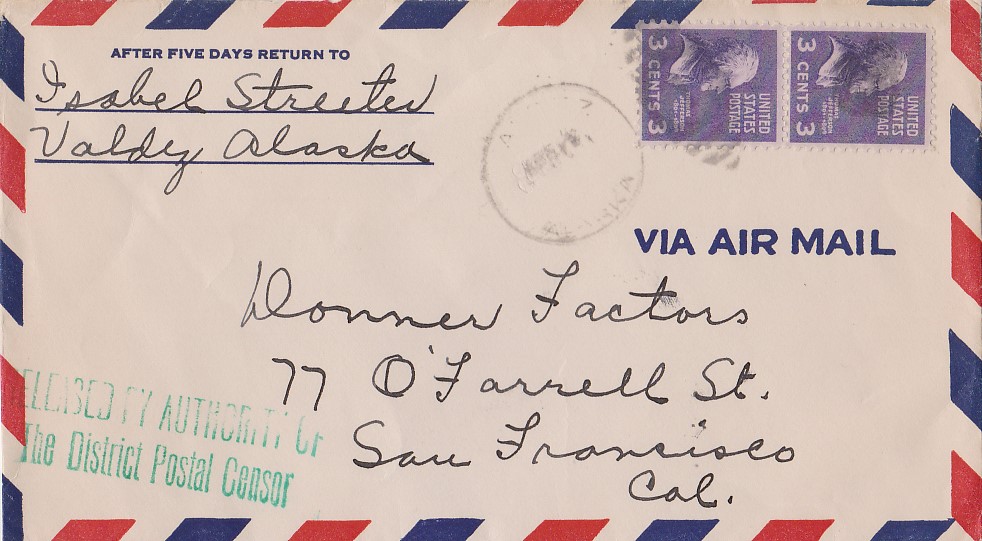 AFTER FIVE DAYS RETURN TO
Isabel Streeter
Valdez Alaska
3 CENTS 3
THOMAS JEFFERSON
UNITED STATES POSTAGE
3 CENTS 3
THOMAS JEFFERSON
UNITED STATES POSTAGE
ALASKA
VIA AIR MAIL
Donner Factors
77 O'Farrell St.
San Francisco
Cal.
ELEASED BY AUTHORITY OF
The District Postal Censor